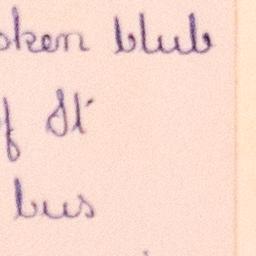 oken blub
f St
bus